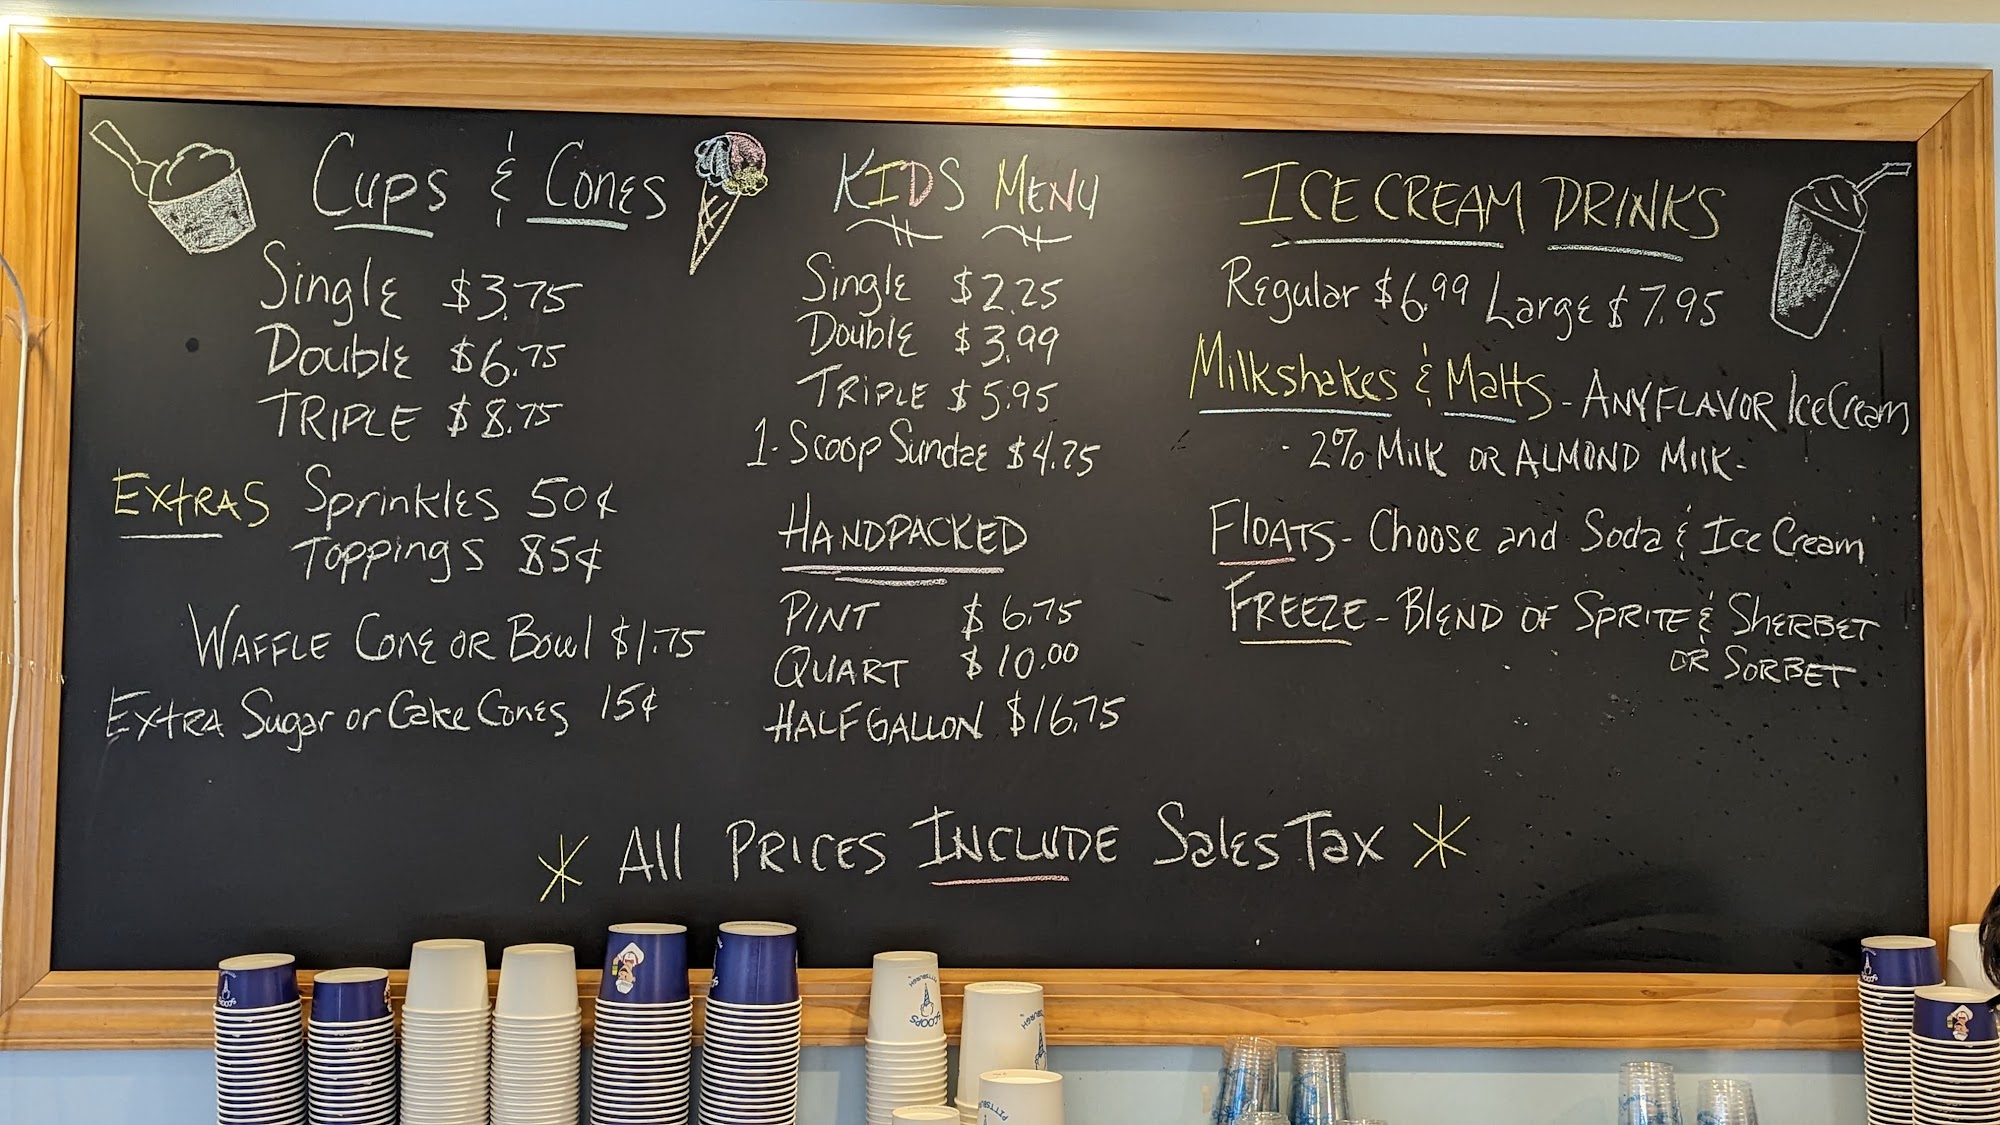 Cups & Cones
Single $3.75
Double $6.75
TRIPLE $8.75
EXTRAS Sprinkles 50¢
Toppings 85¢
WAFFLE CONE OR Bowl $1.75
EXTRA Sugar or Cake Cones 15¢
KIDS MENU
Single $2.25
Double $3.99
TRIPLE $5.95
1-Scoop Sundae $4.25
HANDPACKED
PINT $6.75
QUART $10.00
HALF GALLON $16.75
ICE CREAM DRINKS
Regular $6.99 Large $7.95
Milkshakes & Malts - ANY FLAVOR Ice Cream
- 2% Milk OR ALMOND MILK-
FLOATS - Choose and Soda & Ice Cream
FREEZE - BLEND OF SPRITE & SHERBET
OR SORBET
* All PRICES INCLUDE Sales Tax *
SCOOPS
PITTSBURGH